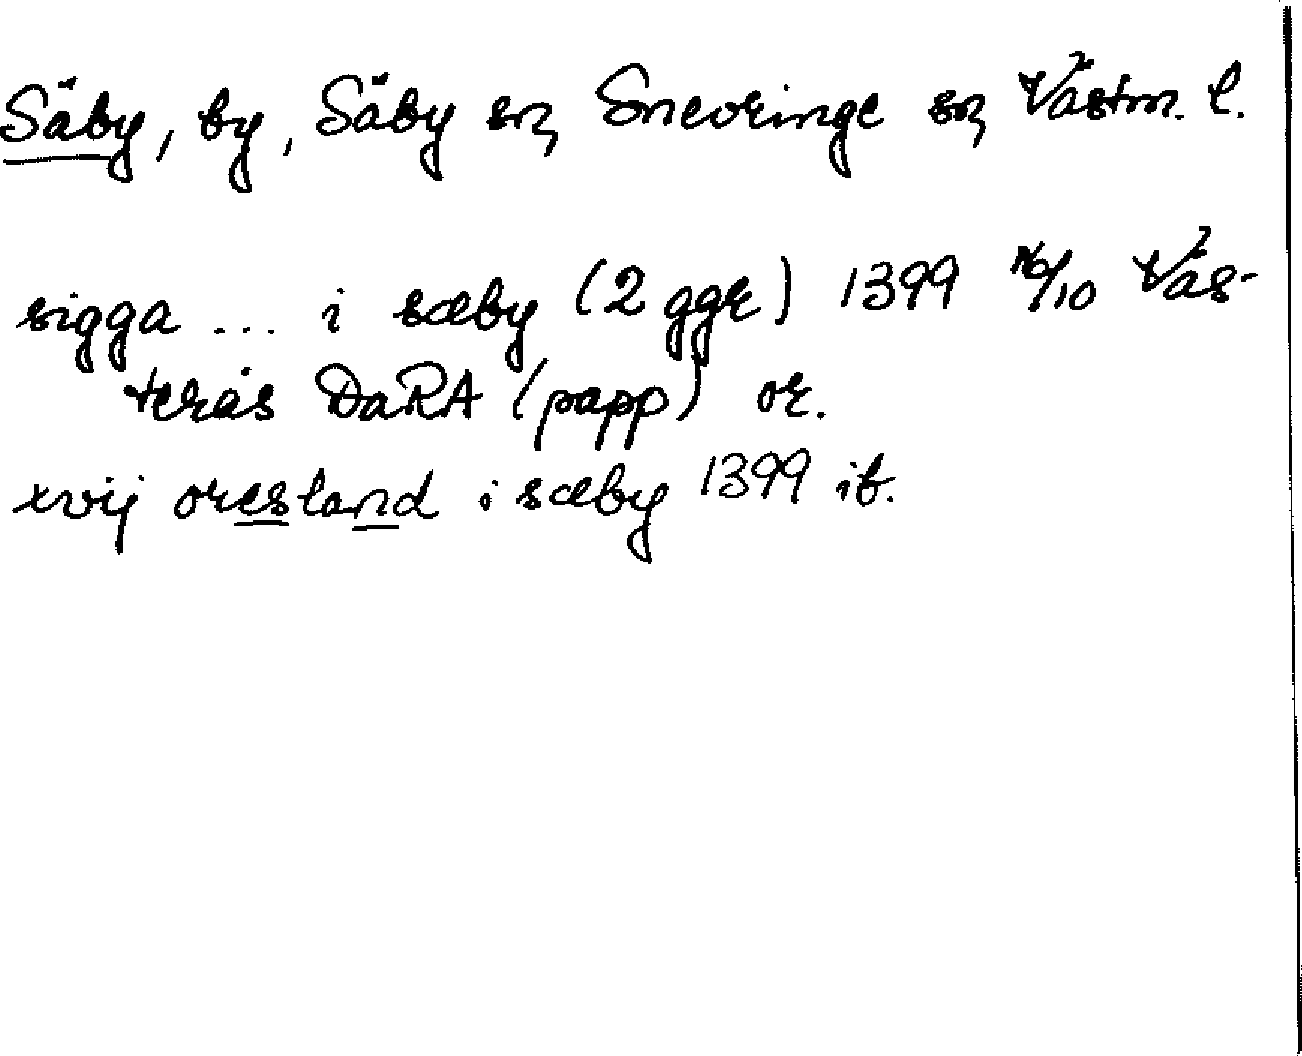 Säby, by, Säby sn, Snevringe hd, Västm. l.
sigga ... i sæby (2 ggr) 1399 16/10 Väs-
terås DaRA (papp) or.
xvij oresland i sæby 1399 ib.